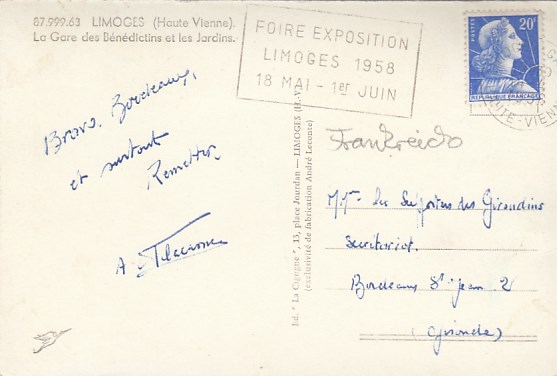 87.999.63 LIMOGES (Haute Vienne).
La Gare des Bénédictins et les Jardins.
Bravo, Bordeaux,
et surtout
A
FOIRE EXPOSITION
LIMOGES 1958
18 MAI - 1er JUIN
20F
POSTES
REPUBLIQUE FRANÇAISE
HAUTE-VIEN
Ed. "La Cigogne", 13, place Jourdan — LIMOGES (H.-V.)
(exclusivité de fabrication André Leconte)
Frankreich
des Supporters des Girondins
Secrétariat.
Bordeaux St Jean 2
(Gironde)